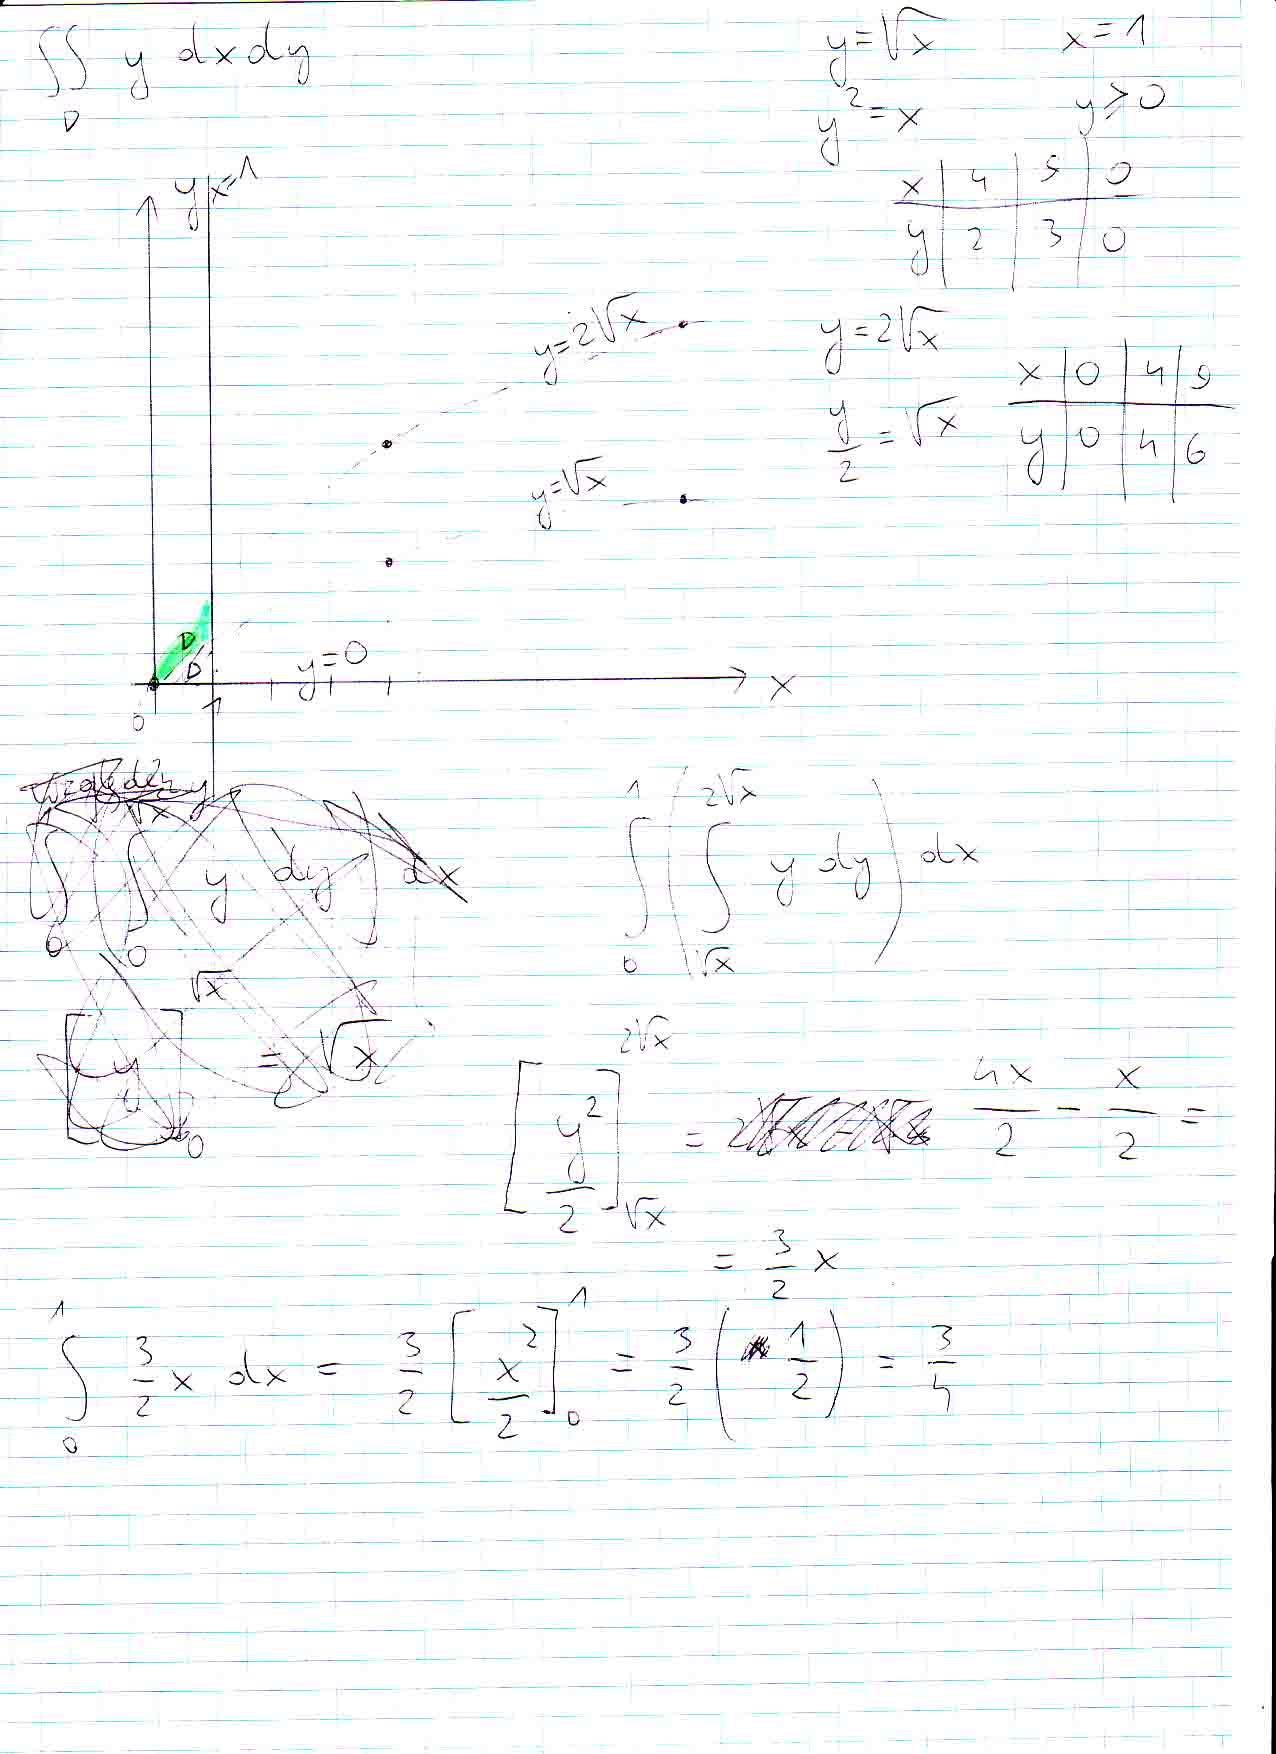 ∬ y dx dy
D
y=√x x=1
y²=x y≥0
x | 4 | 9 | 0
y | 2 | 3 | 0
y=2√x
y/2 = √x
x | 0 | 4 | 9
y | 0 | 4 | 6
y x=1
y=2√x
y=√x
D
D
y=0
0 1 x
∫₀ (∫₀^√x y dy) dx
[y]₀^√x = √x
∫₀¹ (∫_√x^2√x y dy) dx
[y²/2]_√x^2√x = 4x/2 - x/2 =
= 3/2 x
∫₀¹ 3/2 x dx = 3/2 [x²/2]₀¹ = 3/2 (1/2) = 3/4